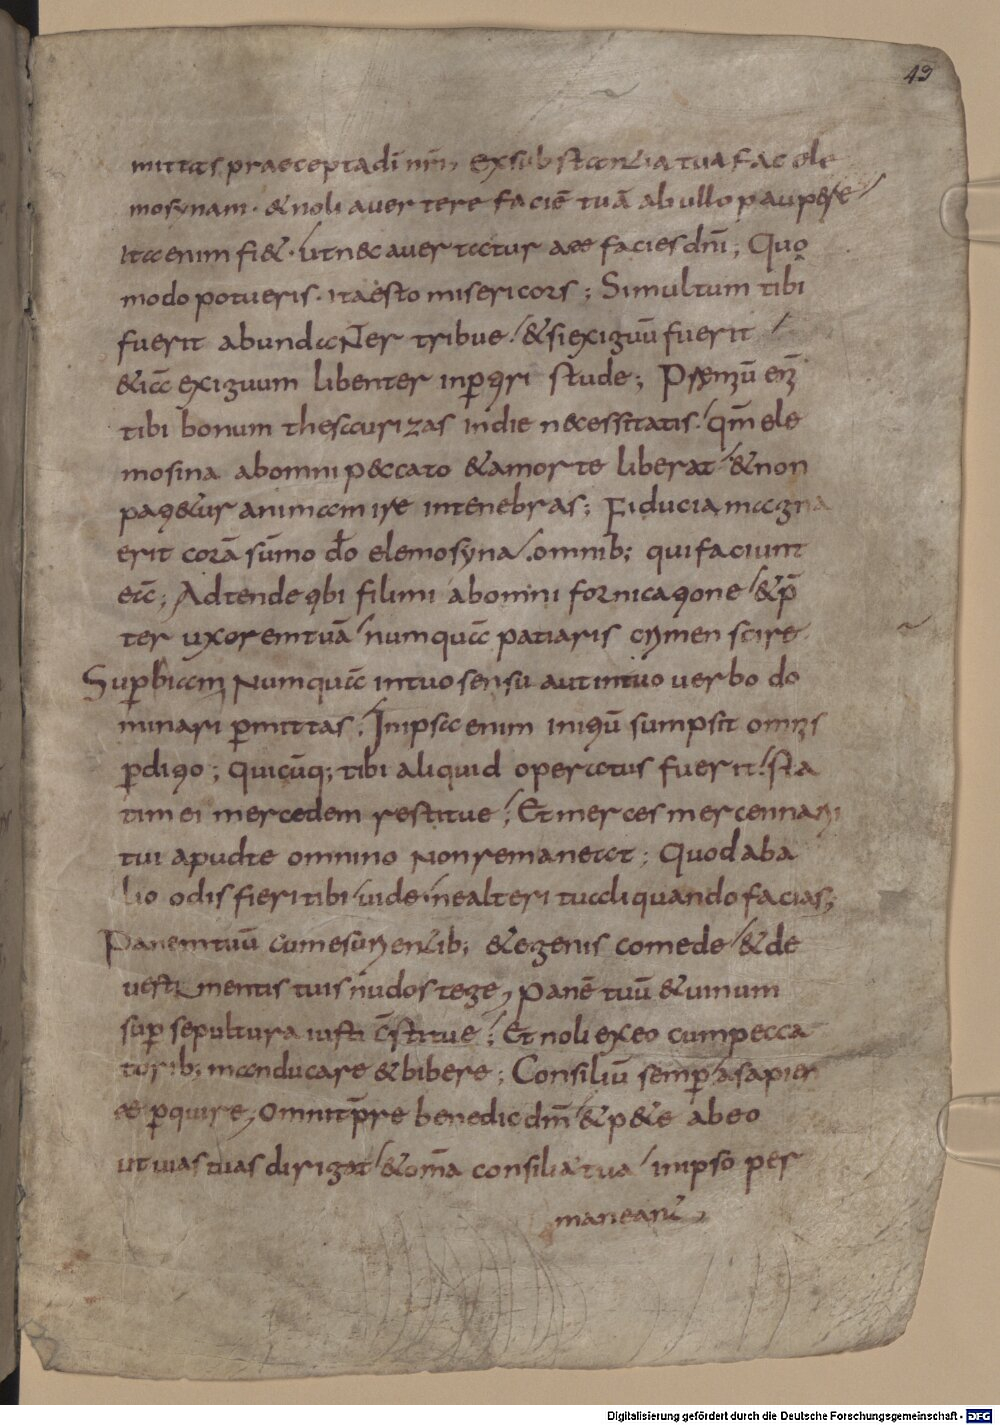 49
mittas praecepta dī nr̄i, ex substantia tua fac ele
mosynam · & noli avertere faciē tuā ab ullo paupere
ita enim fi& · ut nec avertatur a te facies dn̄i ; Quo
modo potueris · ita esto misericors ; Si multum tibi
fuerit abundanter tribue / & si exiguū fuerit
& iā exiguum libenter inp̄tiri stude ; Praemiū eni͞
tibi bonum thesaurizas in die necessitatis / qm̄ ele
mosina ab omni peccato & a morte liberat / & non
pati&ur animam ire in tenebras ; Fiducia magna
erit corā sūmo dō elemosyna / omnib; qui faciunt
eā ; Adtende tibi fili mi ab omni fornicatione / & p̄
ter uxorem tuā / numquā patiaris crimen scire
Superbiam numquā in tuo sensu aut in tuo verbo do
minari p̄mittas ; In ipsa enim initiū sumpsit omnis
p̄ditio ; Quicūq; tibi aliquid operatus fuerit / sta
tim ei mercedem restitue ; Et merces mercennarii
tui apud te omnino non remaneat ; Quod ab a
lio odis fieri tibi / vide · ne alteri tu aliquando facias ;
Panem tuū cum esurientib; & egenis comede / & de
vestimentis tuis nudos tege, Panē tuū & vinum
sup̄ sepultura iusti c̄stitue ; Et noli ex eo cum pecca
torib; manducare & bibere ; Consiliū semp̄ a sapien
te p̄quire, Omni tp̄re benedic dm̄ / & pete ab eo
ut vias tuas dirigat / & om̄a consilia tua / in ipso per
maneant,
Digitalisierung gefördert durch die Deutsche Forschungsgemeinschaft - DFG